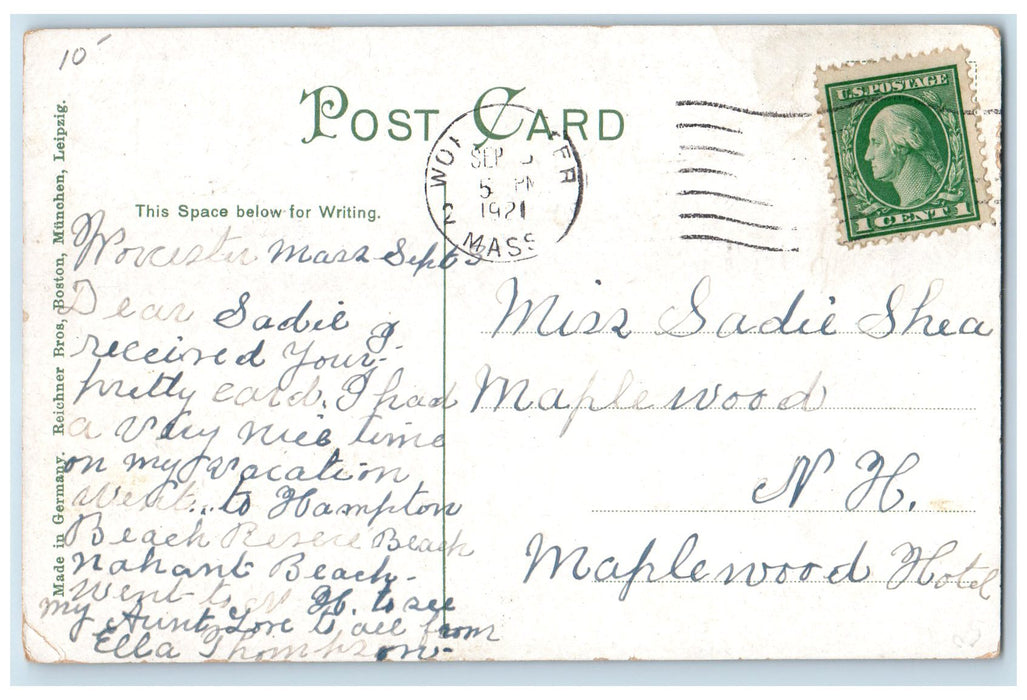 10
POST CARD
U.S. POSTAGE
1 CENT 1
SEP
5 PM
1921
MASS
This Space below for Writing.
Made in Germany. Reichner Bros, Boston, München, Leipzig.
Worcester Mass Sept 3
Dear Sadie I
received Your
pretty card. I had
a very nice time
on my vacation
went.. to Hampton
Beach Revere Beach
Nahant Beach.
Went to N H. to see
my Aunt Love to all from
Ella Thompson.
Miss Sadie Shea
Maplewood
N H.
Maplewood Hotel